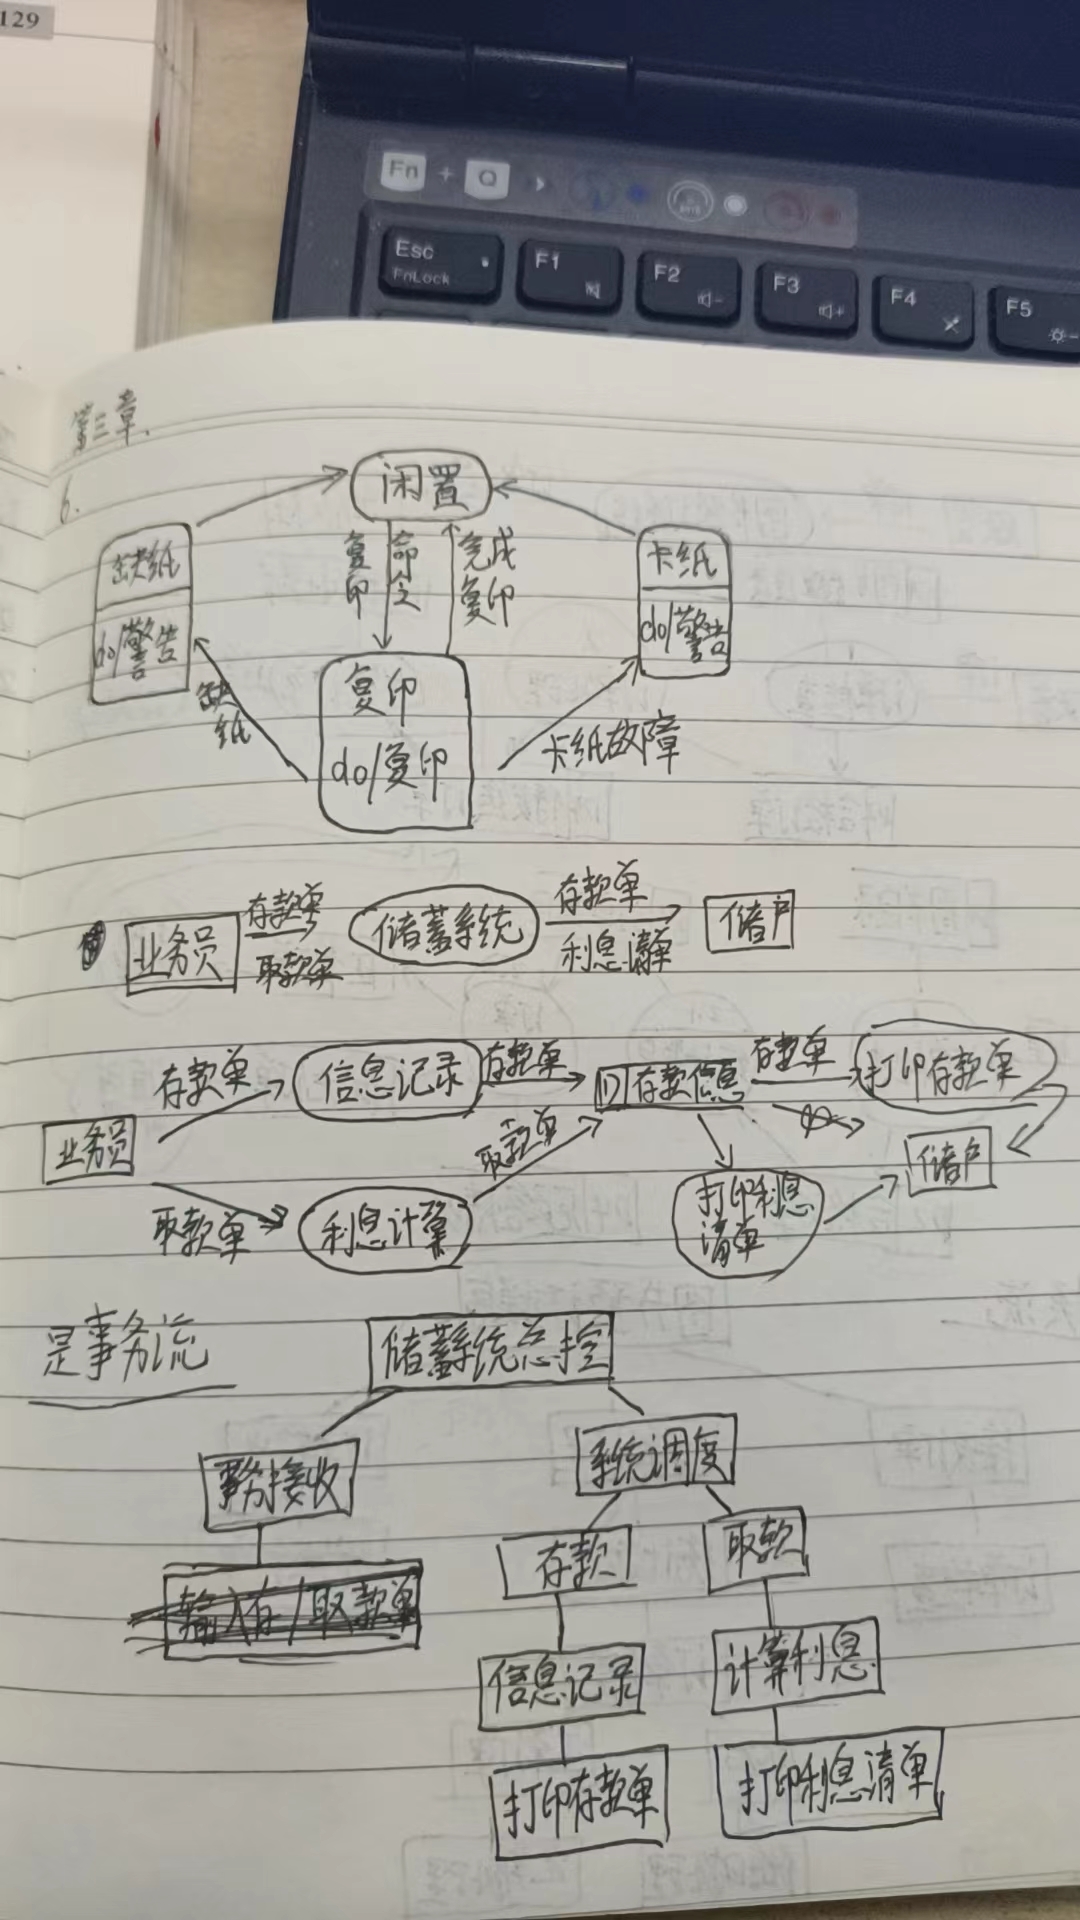 129
Fn + Q
Esc
FnLock
F1
F2
F3
F4
F5
第三章.
6.
闲置
缺纸
do/警告
复印命令
完成复印
卡纸
do/警告
缺纸
复印
do/复印
卡纸故障
业务员
存款单
取款单
储蓄系统
存款单
利息清单
储户
存款单
信息记录
存款单
D1 存款信息
存款单
打印存款单
业务员
取款单
储户
取款单
利息计算
打印利息清单
是事务流
储蓄系统总控
事务接收
系统调度
存款
取款
输入存/取款单
信息记录
计算利息
打印存款单
打印利息清单